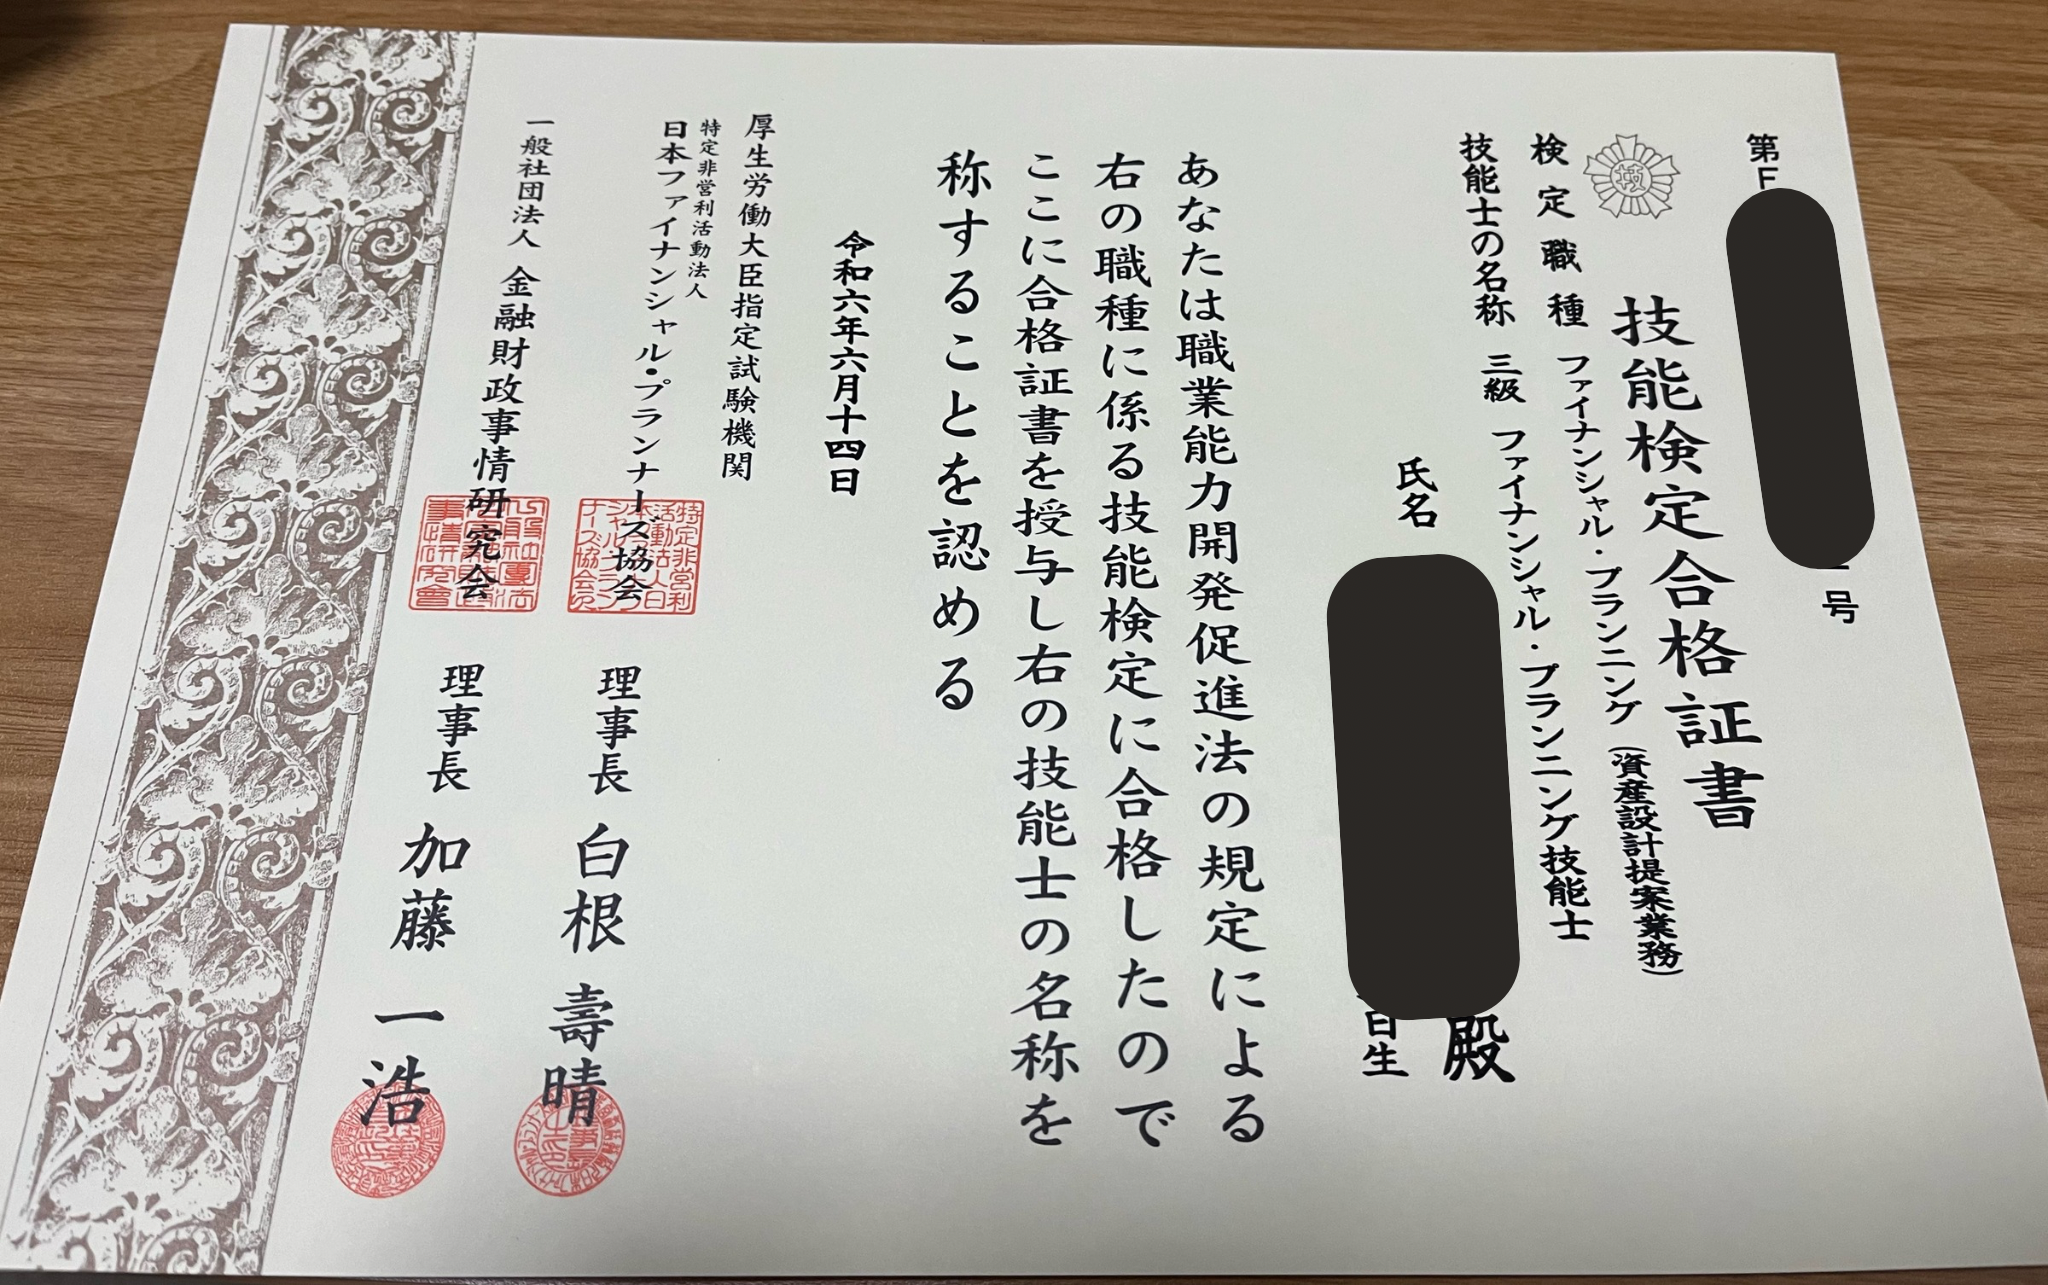 第F
号
技能検定合格証書
技
検定職種 ファイナンシャル・プランニング(資産設計提案業務)
技能士の名称 三級 ファイナンシャル・プランニング技能士
氏名
殿
日生
あなたは職業能力開発促進法の規定による
右の職種に係る技能検定に合格したので
ここに合格証書を授与し右の技能士の名称を
称することを認める
令和六年六月十四日
厚生労働大臣指定試験機関
特定非営利活動法人
日本ファイナンシャル・プランナーズ協会 理事長 白根 壽晴
一般社団法人 金融財政事情研究会 理事長 加藤 一浩